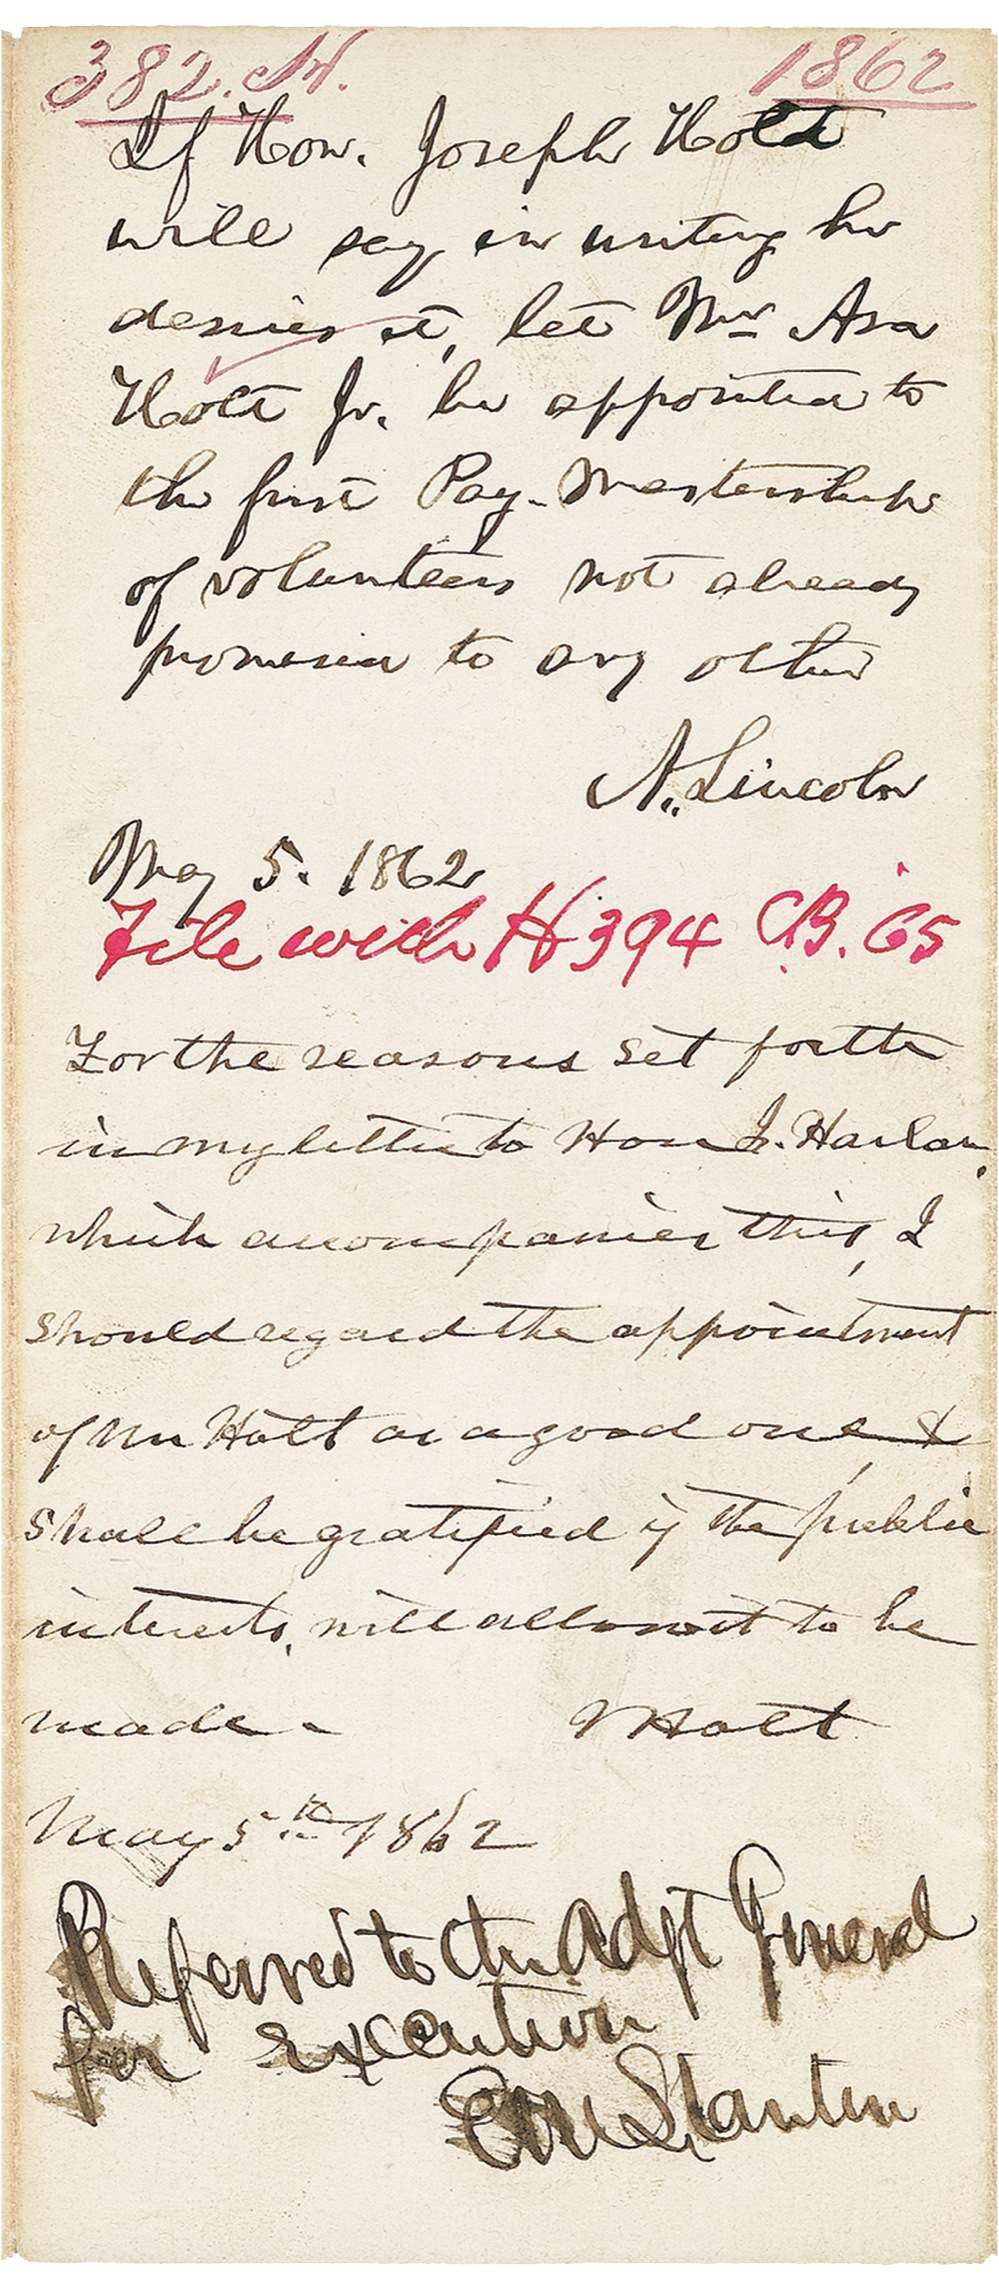 382. H. 1862
If Hon. Joseph Holt
will say in writing he
desires it, let Mr Asa
Holt Jr. be appointed to
the first Pay-Mastership
of volunteers not already
promised to any other
A. Lincoln
May 5. 1862
File with H 394 C.B. 65
For the reasons set forth
in my letter to Hon J. Harlan,
which accompanies this, I
should regard the appointment
of Mr Holt as a good one, &
shall be gratified if the public
interests, will allow it to be
made. Holt
May 5th 1862
Referred to the Adjt General
for execution
EM Stanton